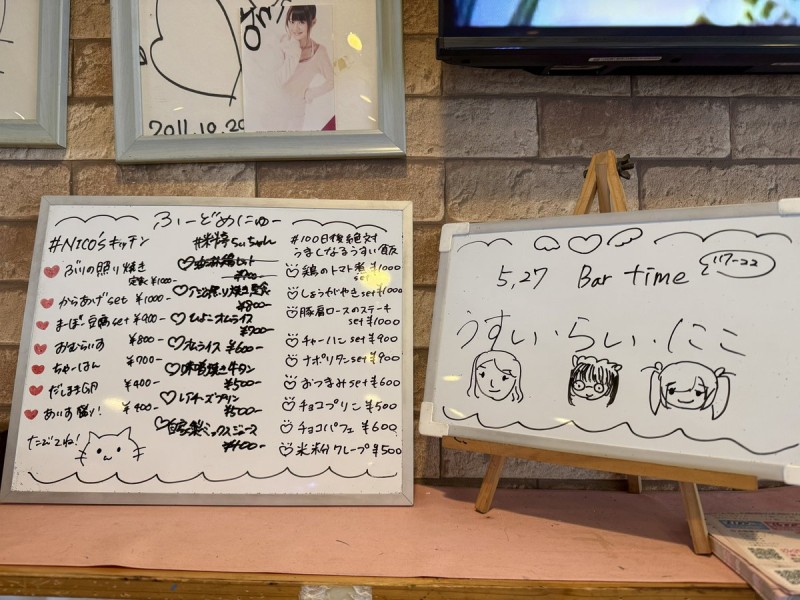 2011.10.20
ふーどめにゅー
#NICO'sキッチン
ぶりの照り焼き
定食¥1000-
からあげset ¥1000-
まーぼー豆腐set ¥900-
おむらいす ¥800-
ちゃーはん ¥700-
だしまき ¥400-
あいす盛り! ¥400-
たべてね!
らいちゃん
¥900-
¥800-
ひよこオムライス
¥700-
オムライス ¥600-
味噌焼き牛タン
¥500-
レアチーズプリン
¥500-
自家製ミックスジュース
¥400-
#100日後絶対
うすい飯
鶏のトマト煮 ¥1000
set
しょうがやきset ¥1000
豚肩ロースのステーキ
set ¥1000
チャーハン set ¥900
ナポリタンset ¥900
おつまみset ¥600
チョコプリン ¥500
チョコパフェ ¥600
米粉クレープ ¥500
5,27 Bar time
うすい・らい・にこ